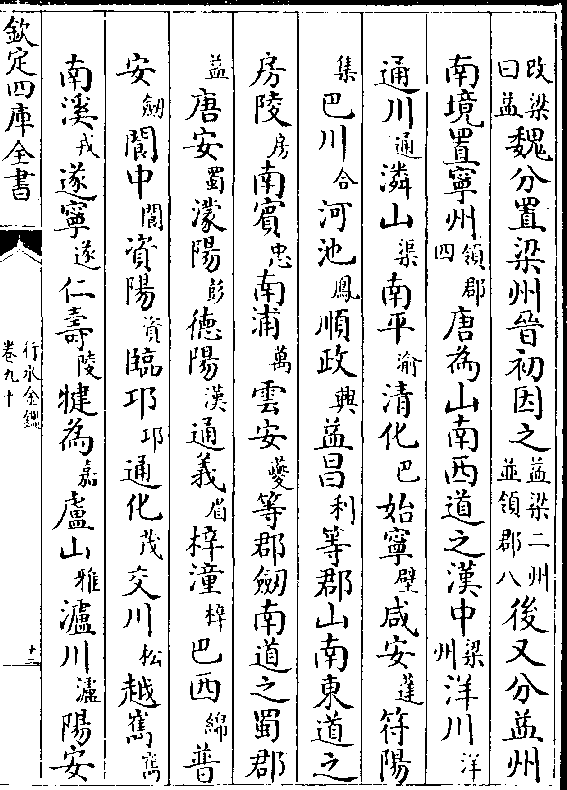 改梁曰益魏分置梁州晉初因之益梁二州並領郡八後又分益州
南境置寧州領郡四唐為山南西道之漢中梁州洋川洋
通川通潾山渠南平渝清化巴始寧壁咸安蓬符陽
集巴川合河池鳳順政興益昌利等郡山南東道之
房陵房南賓忠南浦萬雲安夔等郡劒南道之蜀郡
益唐安蜀濛陽彭德陽漢通義眉梓潼梓巴西綿普
安劒閬中閬資陽資臨邛邛通化茂交川松越嶲嶲
南溪戎遂寧遂仁壽陵犍為嘉盧山雅瀘川瀘陽安
欽定四庫全書
行水金鑑
卷九十
十二